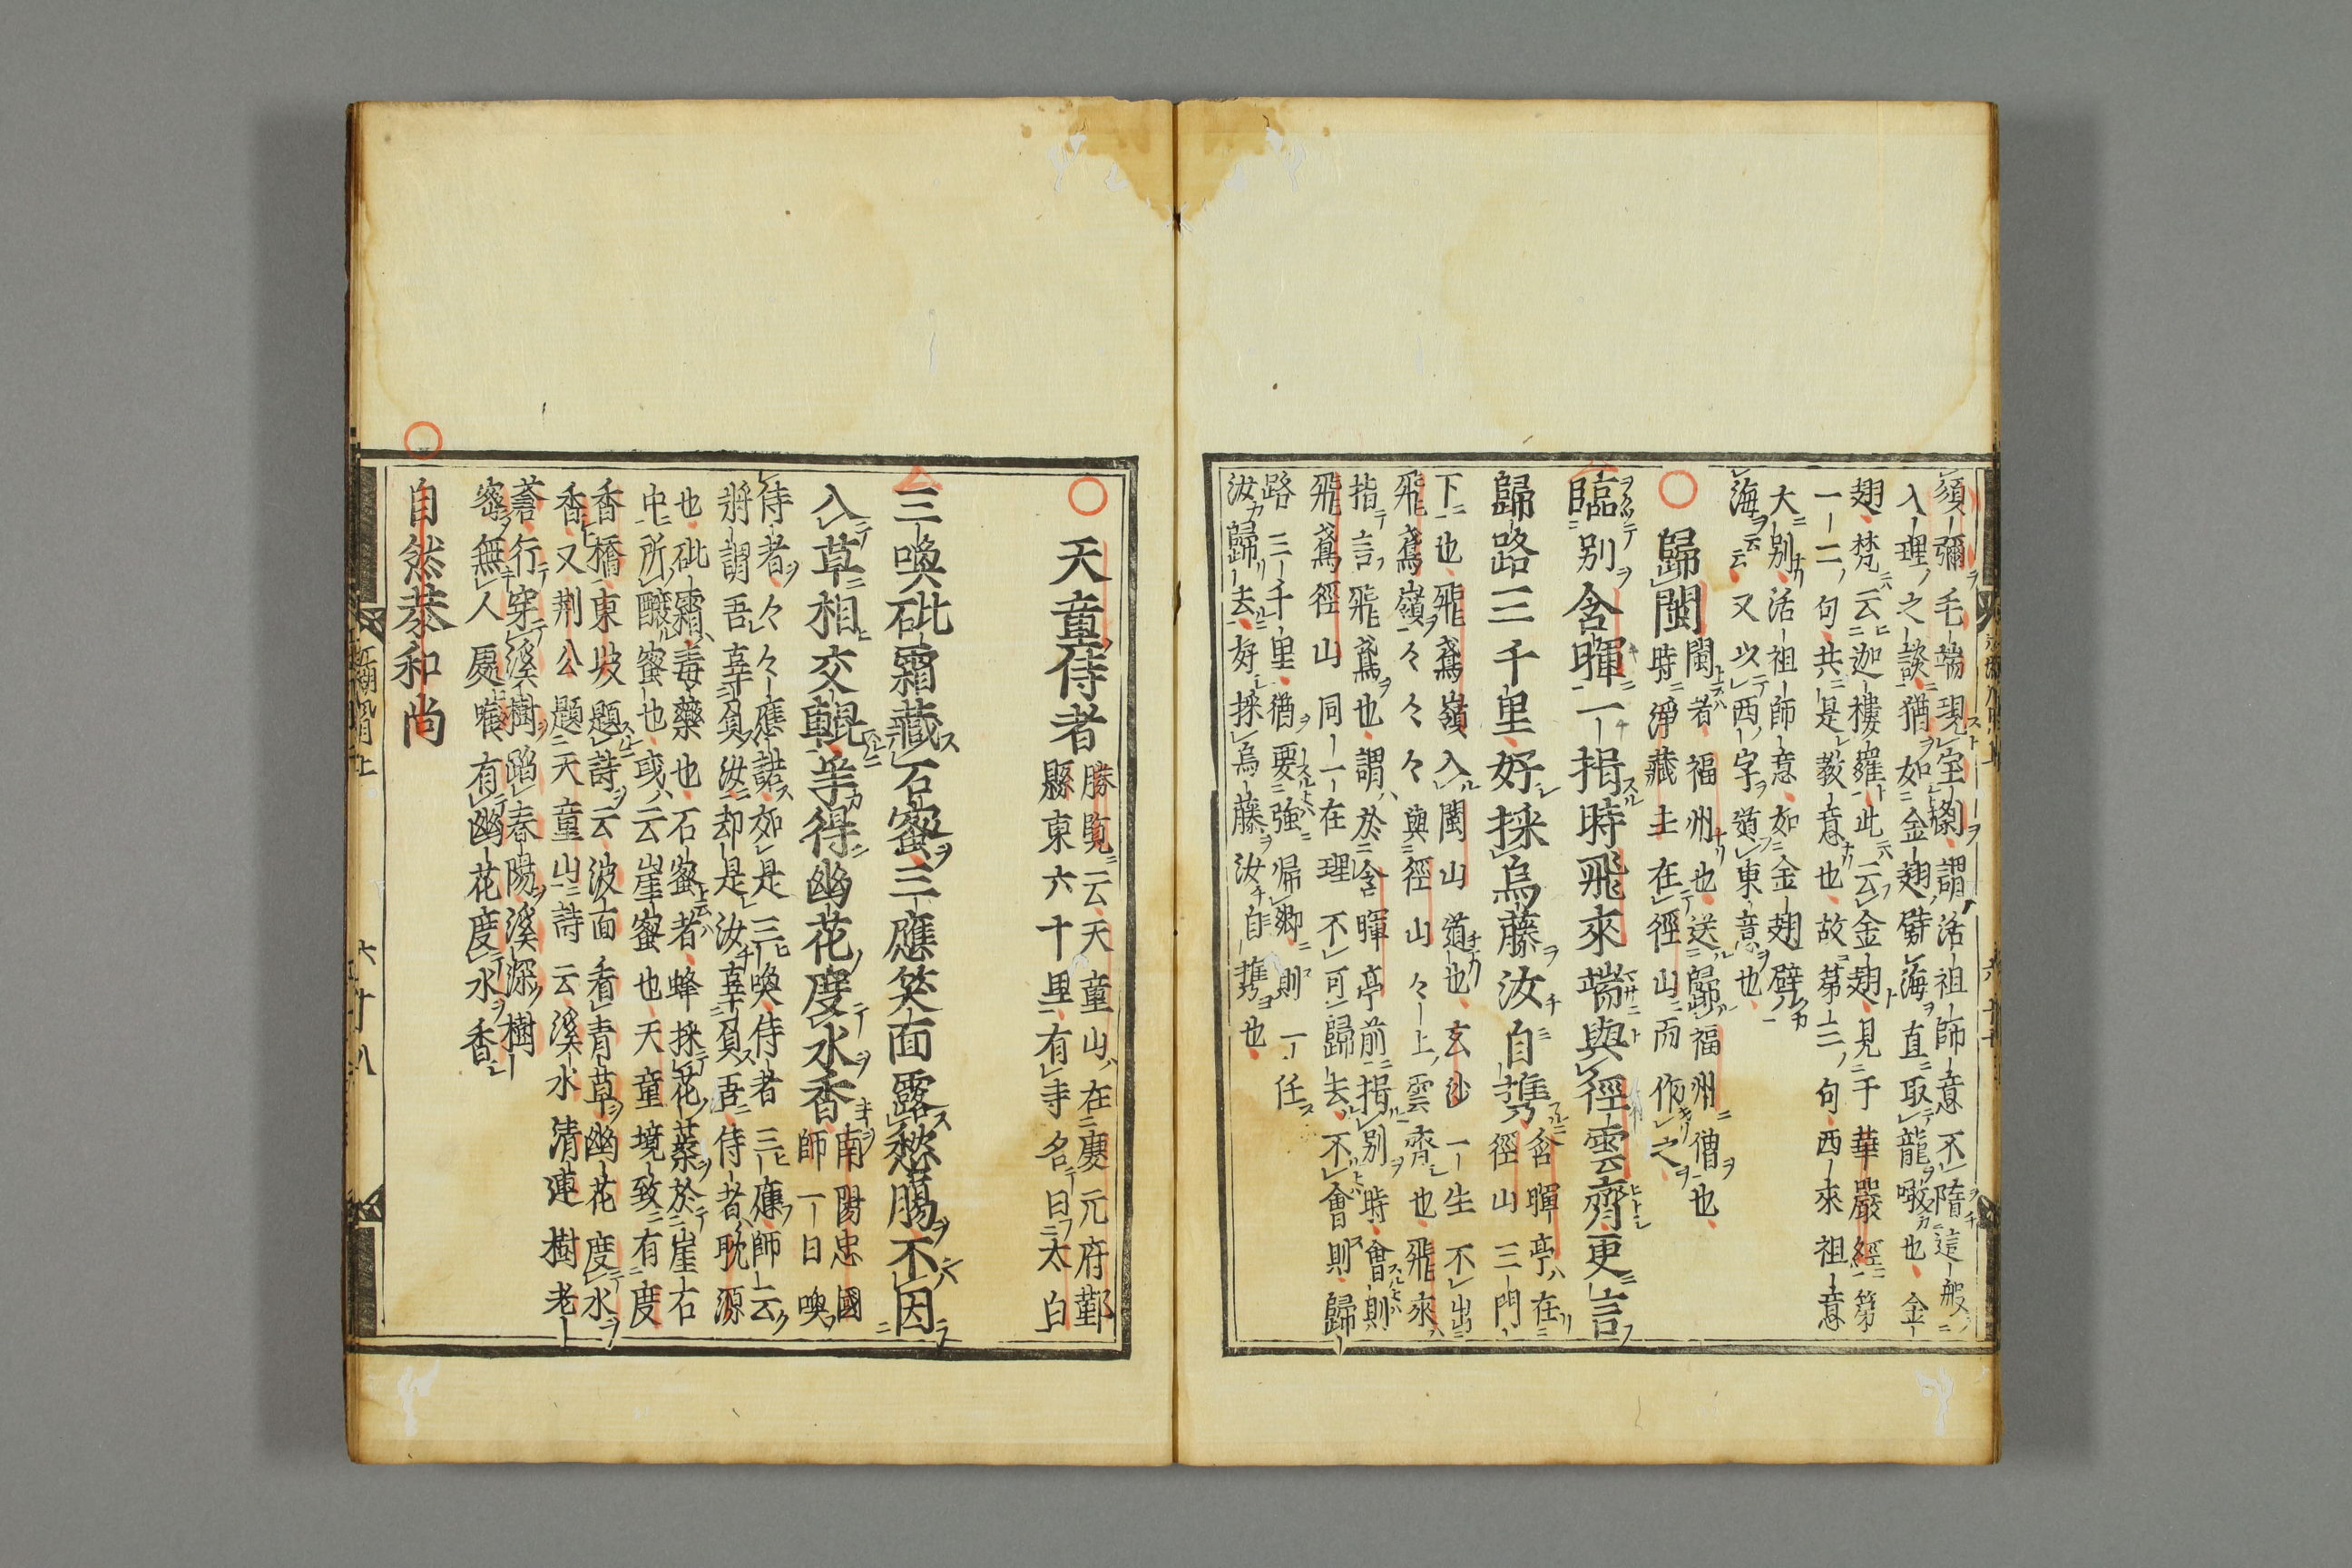 須彌毛端現宝樹謂活祖師意不墮這般
入理之談猶如金翅劈海直取龍噉也金
翅梵云迦樓羅此云金翅見于華嚴經第
一一二句共是教意也故第三句西來祖意
大別活祖師意如金翅劈
海云云又以西字道東意也
歸閩
閩者福州也送歸福州僧也
時淨藏主在徑山而作之
臨別含暉一指時飛來端與徑雲齊更言
歸路三千里好採烏藤汝自携
含暉亭在
徑山三門
下也飛鳶嶺入閩山道也玄沙一生不出
飛鳶嶺々々々與徑山々上雲齊也飛來
指言飛鳶也謂於含暉亭前指別時會則
飛鳶徑山同一在理不可歸去不會則歸
路三千里猶要強帰郷則一任
汝歸去好採烏藤汝自携也
天童侍者
勝覧云天童山在慶元府鄞
縣東六十里有寺名曰太白
三喚砒霜藏石蜜三應笑面露愁腸不因
入草相交輥羊得幽花度水香
南陽忠國
師一日喚
侍者々々應諾如是三喚侍者三應師云
將謂吾辜負汝却是汝辜負吾侍者耽源
也砒霜毒藥也石蜜者蜂採花蘂於崖石
中所醸蜜也或云崖蜜也天童境致有度
香橋東坡題詩云波面看青草幽花度水
香又荆公題天童山詩云溪水清漣樹老
蒼行穿溪樹蹈春陽溪深樹
密無人處唯有幽花度水香
自然恭和尚
江湖風月上
六十八